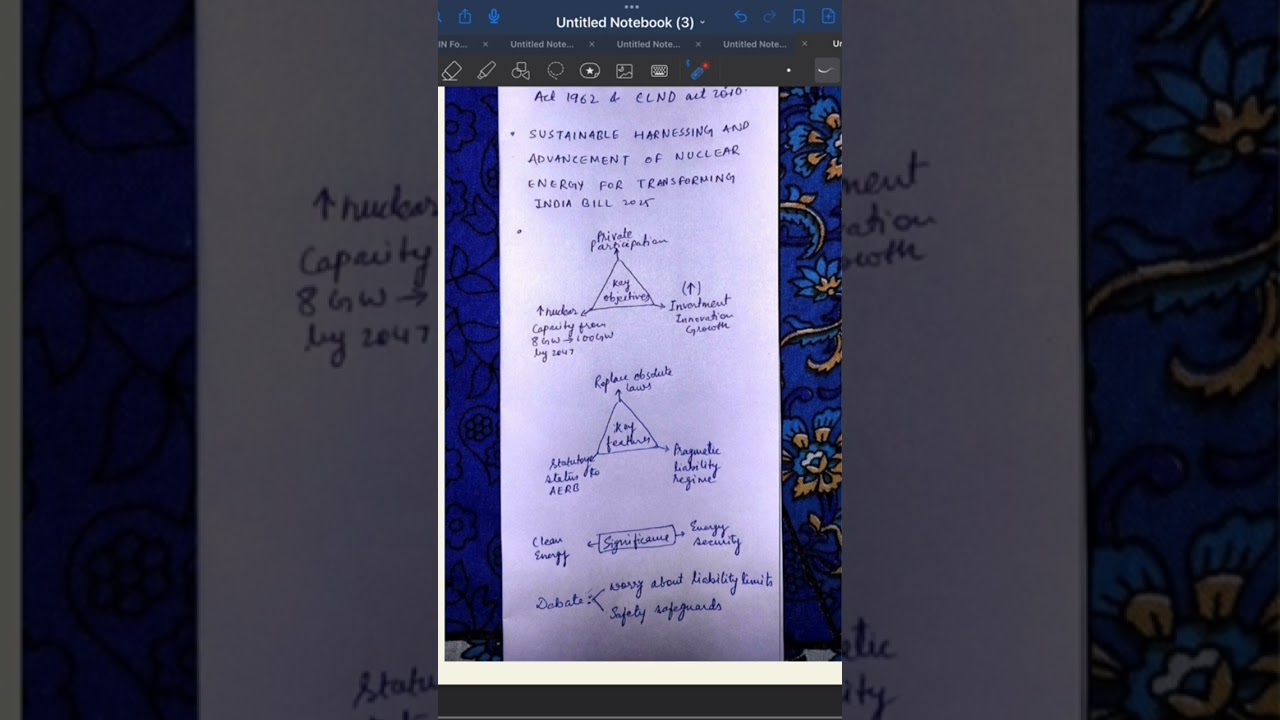 Untitled Notebook (3)
IN Fo...
Untitled Note...
Untitled Note...
Untitled Note...
Un
Act 1962 & CLND act 2010.
• SUSTAINABLE HARNESSING AND
ADVANCEMENT OF NUCLEAR
ENERGY FOR TRANSFORMING
INDIA BILL 2025
Private
participation
Key
objectives
↑ nuclear
Capacity from
8 GW → 100GW
by 2047
(↑)
Investment
Innovation
Growth
Replace obsolute
laws
Key
features
Statutory
status to
AERB
Pragmetic
liability
regime
Clean
Energy
Significance
Energy
security
Debate:
worry about liability limits
Safety safeguards
↑ nuclear
Capacity
8 GW →
by 2047
ment
ation
owth
Statu
etic
ity